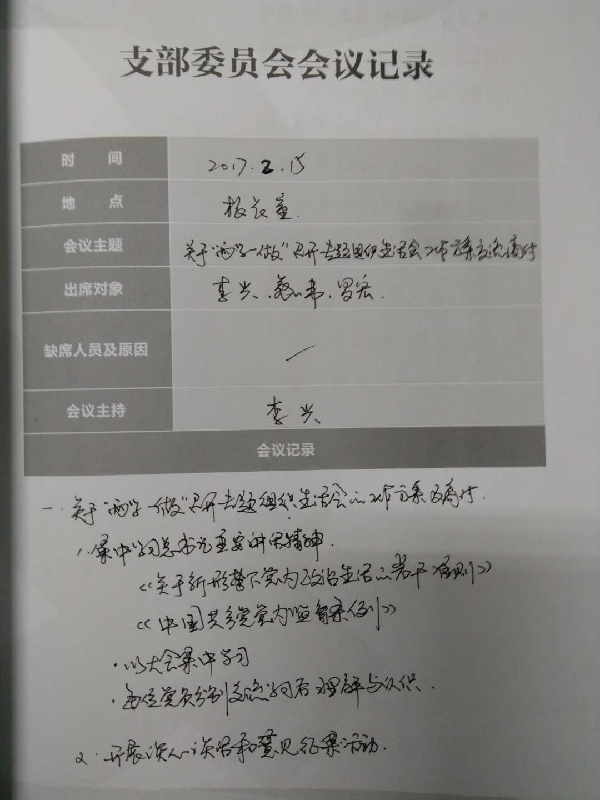 支部委员会会议记录
时 间 2017.2.15
地 点 校长室
会议主题 关于"两学一做"召开专题组织生活会工作方案交流商讨
出席对象 李兴、蔡小韦、罗宏.
缺席人员及原因 —
会议主持 李兴
会议记录
一、关于"两学一做"召开专题组织生活会的工作方案的商讨.
1、集中学习总书记重要讲话精神.
《关于新形势下党内政治生活的若干准则》
《中国共产党党内监督条例》
·以大会集中学习
·每位党员分别交流学习后理解与认识.
2、开展谈心谈话和意见征集活动.